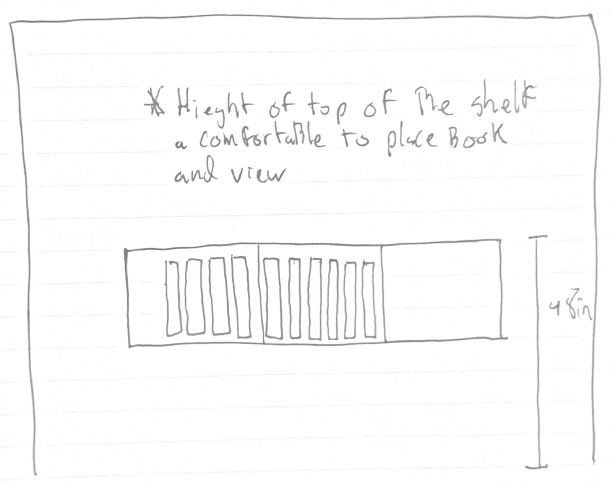 * Hieght of top of The shelf
a comfortable to place Book
and view
48in